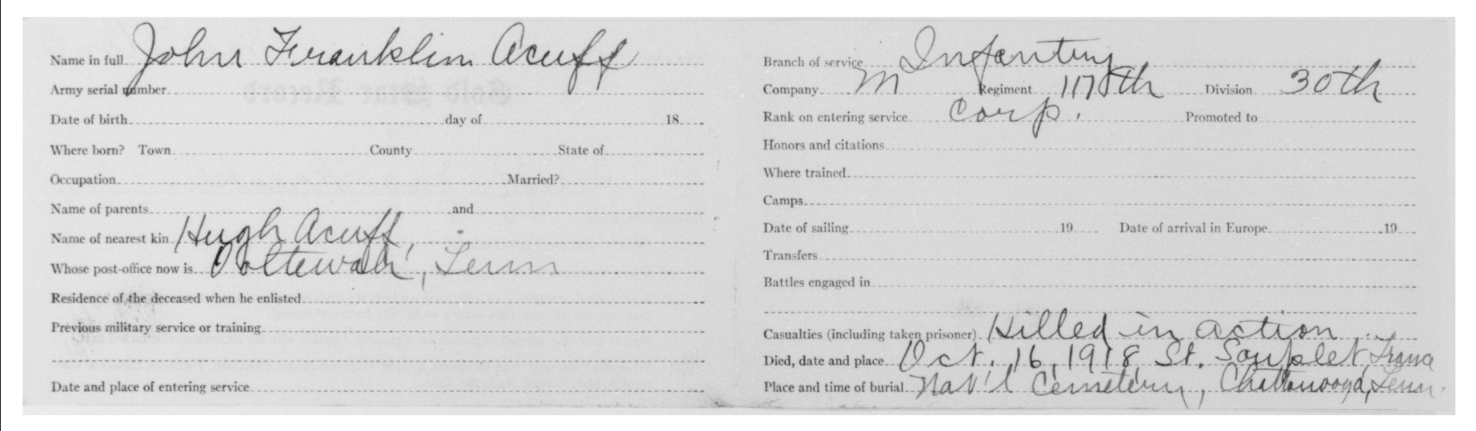 Name in full John Franklin Acuff
Army serial number
Date of birth day of 18
Where born? Town County State of
Occupation Married?
Name of parents and
Name of nearest kin Hugh Acuff,
Whose post-office now is Ooltewah, Tenn
Residence of the deceased when he enlisted
Previous military service or training
Date and place of entering service
Branch of service Infantry
Company M Regiment 117th Division 30th
Rank on entering service Corp. Promoted to
Honors and citations
Where trained
Camps
Date of sailing 19 Date of arrival in Europe 19
Transfers
Battles engaged in
Casualties (including taken prisoner) Killed in action
Died, date and place Oct. 16, 1918 St. Souplet France
Place and time of burial Nat'l Cemetery, Chattanooga, Tenn.